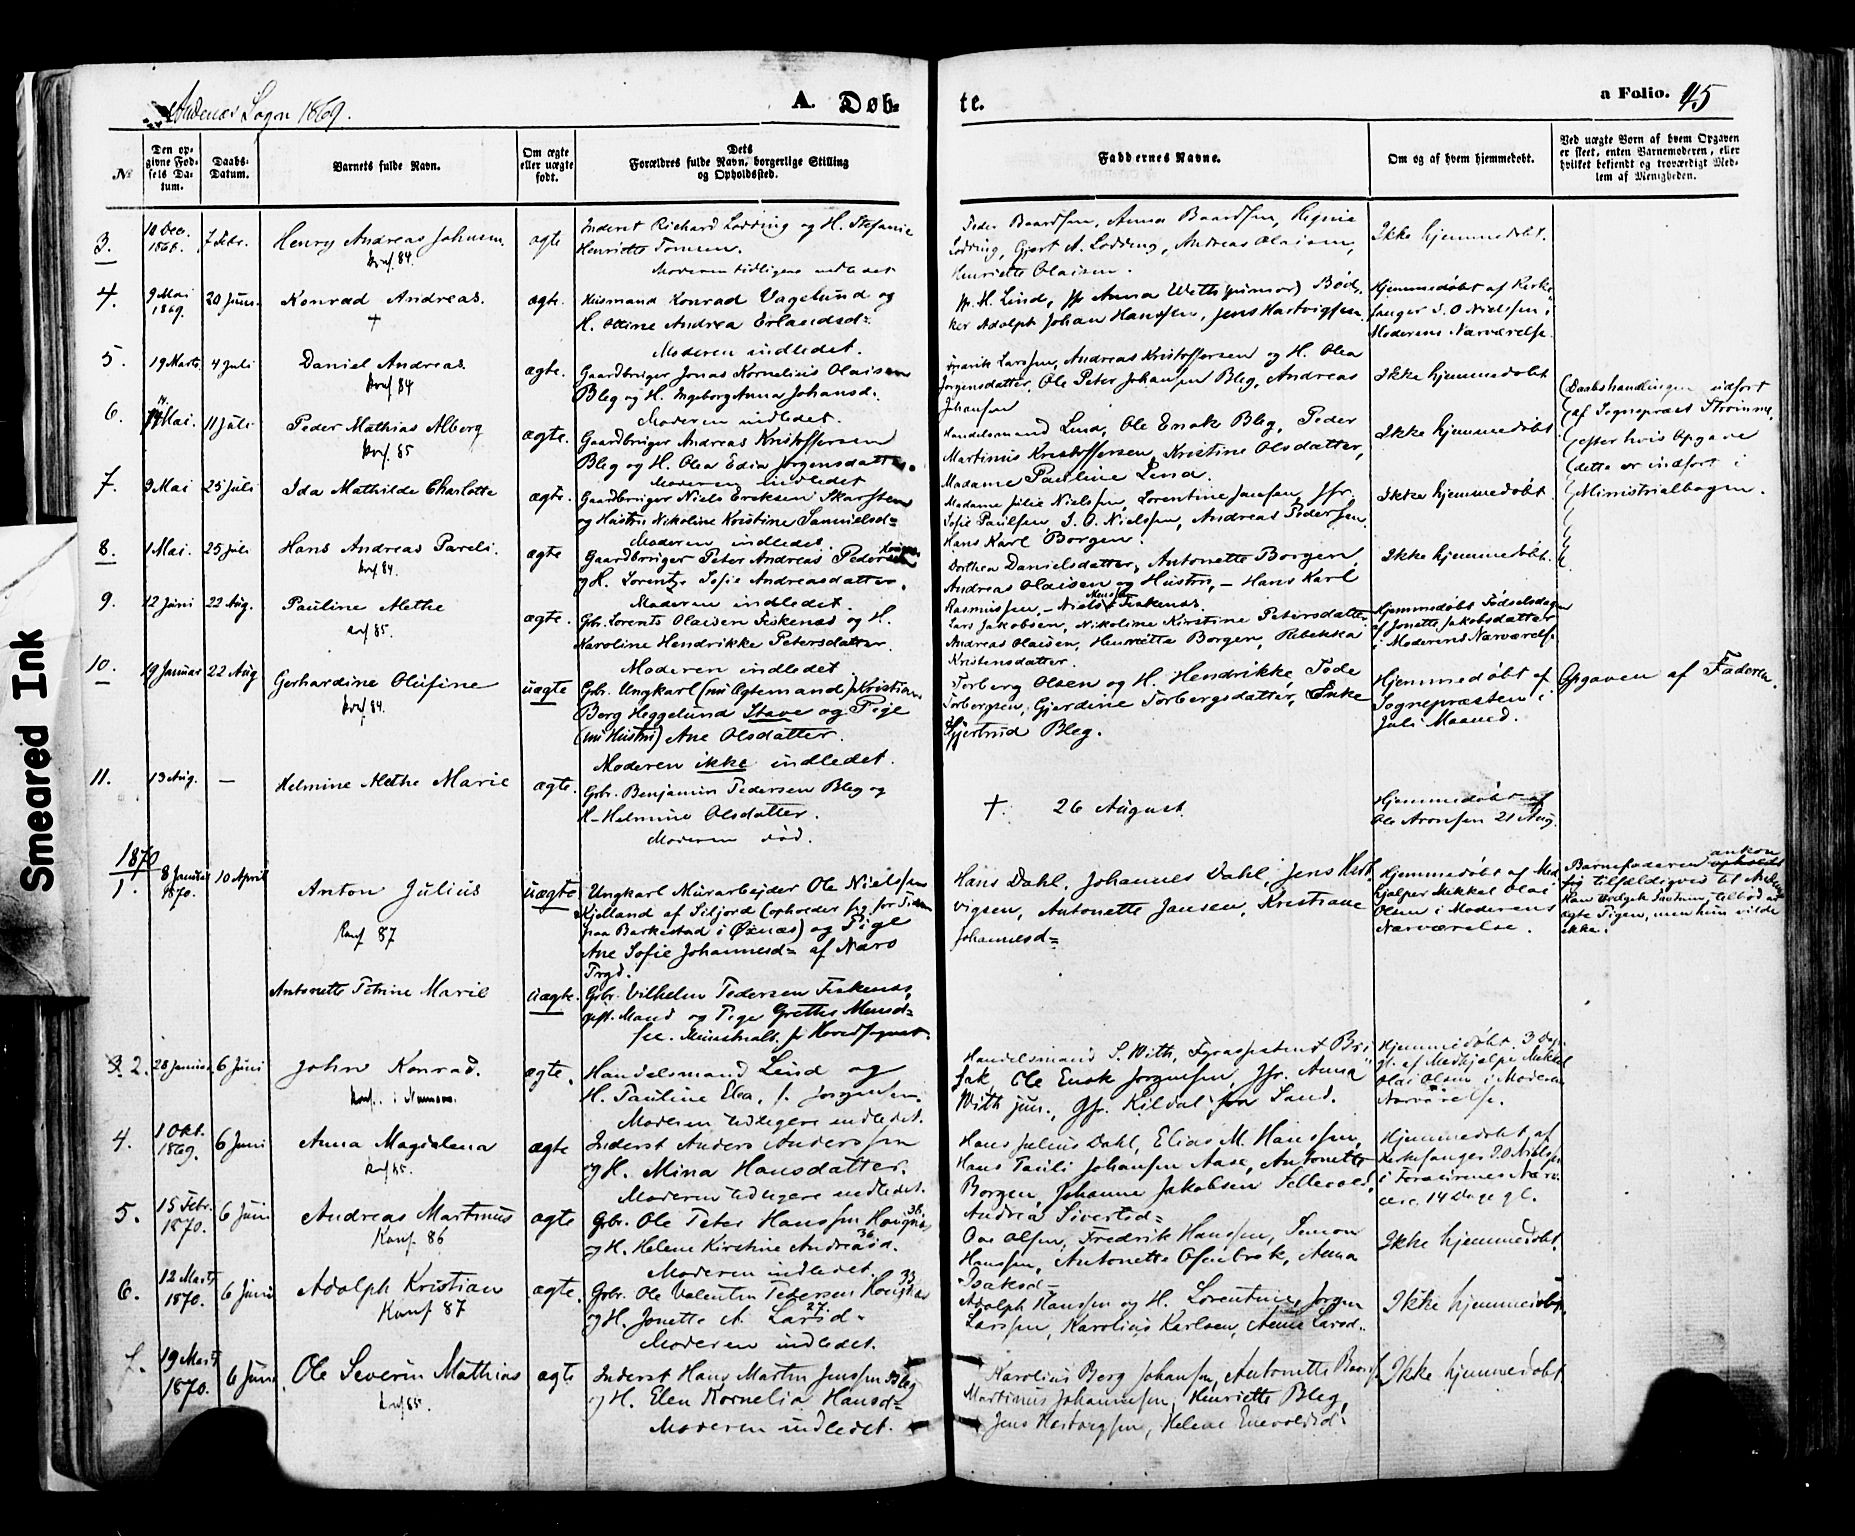 Andenæs Sogn 1869.
A. Døb-
te.
a Folio. 45
№
Den op-
givne Fød-
sels Da-
tum.
Daabs-
Datum.
Barnets fulde Navn.
Om ægte
eller uægte
født.
Dets
Forældres fulde Navn, borgerlige Stilling
og Opholdssted.
Faddernes Navne.
Om og af hvem hjemmedøbt.
Ved uægte Børn af hvem Opgaven
er skeet, enten Barnemoderen, eller
hvilket bekjendt og troværdigt Med-
lem af Menigheden.
3.
10 Dec.
1868.
7 Febr.
Henry Andreas Johnsen.
Konf. 84.
ægte
Inderst Richard Lodding og H. Stefanie
Henriette Tomsen.
Moderen tidligere indledet
Peder Baardsen, Anna Baardsen, Regine
Lodding, Gjert A. Lodding, Andreas Olaisen,
Henriette Olaisen.
Ikke hjemmedøbt.
4.
9 Mai
1869.
20 Juni
Konrad Andreas.
†
ægte.
Huusmand Konrad Vagelund og
H. Oline Andrea Erlandsd=
Moderen indledet.
H. Lind, Anna With (senior) Bød-
ker Adolph Johan Hanssen, Jens Hartvigsen,
Hjemmedøbt af Kirke-
sanger I. O Nielssen i
Moderens Nærværelse.
5.
19 Marts
4 Juli
Daniel Andreas.
Konf 84
ægte.
Gaardbruger Jonas Kornelius Olaisen
Bleg og H. Ingeborg Anna Johansd=
Moderen indledet.
Fredrik Larssen, Andreas Kristoffersen og H. Olea
Jørgensdatter, Ole Peter Johansen Bleg, Andreas
Johansen
Ikke hjemmedøbt
6.
14 Mai.
11 Juli
Peder Mathias Alborg
Konf. 85
ægte.
Gaardbruger Andreas Kristoffersen
Bleg og H. Olea Edia Jørgensdatter.
Moderen indledet
Handelsmand Lind, Ole Enok Bleg, Peder
Martinus Kristoffersen, Kristine Olsdatter,
Madame Pauline Lind.
Ikke hjemmedøbt
Daabshandlingen udført
af Sognepræst Strømme
efter hvis Opgave
dette er indført i
Ministrialbogen.
7.
9 Mai
25 Juli
Ida Mathilde Charlotte
ægte.
Gaardbruger Niels Eriksen Skarsten
og Hustru Nikoline Kristine Samuelsd=
Moderen indledet.
Madame Julie Nielssen, Lorentine Jansen, Jfr.
Sofie Paulsen, I. O. Nielssen, Andreas Pedersen
Hans Karl Borgen.
Ikke hjemmedøbt
8.
1 Mai.
25 Juli
Hans Andreas Pareli.
Konf 84.
ægte
Gaardbruger Peter Andreas Pedersen
og H. Lorentze Sofie Andreasdatter.
Moderen indledet.
Dorthea Danielsdatter, Antonette Borgen,
Andreas Olaisen og Hustru, – Hans Karl
Rasmussen, – Niels Fiskenæs.
Ikke hjemmedøbt.
9.
12 Juni
22 Aug.
Pauline Alethe
Konf 85.
ægte.
Gbr. Lorents Olaisen Fiskenæs og H.
Karoline Hendrikke Petersdatter.
Moderen indledet
Lars Jakobsen, Nikoline Kirstine Petersdatter
Andreas Olaisen, Henriette Borgen, Rebekka
Kristensdatter.
Hjemmedøbt Fødselsdagen
af Jonette Jakobsdatter
i Moderens Nærværelse
10.
19 Januar
22 Aug
Gerhardine Olufine
Konf 84.
uægte
Gbr. Ungkarl (nu Ægtemand) Kristian
Berg Heggelund Stave og Pige
(nu Hustru) Ane Olsdatter.
Moderen ikke indledet.
Torberg Olsen og H. Hendrikke, Tode
Torbergsen, Gjerdine Torbergsdatter, Enke
Gjertrud Bleg.
Hjemmedøbt af
Sognepræsten i
Juli Maaned.
Opgaven af Faderen.
11.
13 Aug.
—
Helmine Alethe Marie
ægte.
Gbr. Benjamin Pedersen Bleg og
H– Helmine Olsdatter.
Moderen død.
†. 26 August.
Hjemmedøbt af
Ole Aronsen 21 Aug.
1870
1.
8 Januar
1870.
10 April
Anton Julius
Konf 87
uægte
Ungkarl Murarbejder Ole Nielssen
Kjelland af Siljord (opholder sig for Tiden
paa Barkestad i Øxnæs) og Pige
Ane Sofie Johannesd= af Næro
Prgd.
Hans Dahl, Johannes Dahl, Jens Hart-
vigsen, Antonette Jansen, Kristiane
Johannesd=
Hjemmedøbt af Med
hjælper Mikkel Olai
Olsen i Moderens
Nærværelse.
Barnefaderen ankom
tilfældigvis til Andenæs
tilbød at
ægte Pigen, men hun vilde
ikke.
Antonette Petrine Marie
uægte.
Gbr. Vilhelm Pedersen Fiskenæs,
gift Mand og Pige Grethe Monsd=
see. Ministrialb. f. Hovedsognet.
2.
28 Januar
6 Juni
John Konrad.
ægte.
Handelsmand Lind og
H. Pauline Elea, f. Jørgensen.
Moderen tidligere indledet.
Handelsmand S. With, Fyrassistent Bri
sak, Ole Enok Jørgensen, Jfr. Anna
With jun., Jfr. Kildal fra Sand.
Hjemmedøbt 3 Dage
gl. af Medhjælper Mikkel
Olai Olsen i Moderens
Nærværelse.
4.
1 Okt.
1869.
6 Juni
Anna Magdalena
Konf 85.
ægte
Inderst Anders Anderssen
og H. Mina Hansdatter.
Moderen tidligere indledet.
Hans Julius Dahl, Elias M. Hanssen,
Hans Pauli Johansen Aase, Antonette
Borgen, Johanna Jakobsen Sellevold,
Andrea Sivertsd=
Hjemmedøbt af
Kirkesanger I. O Nielssen
i Forældrenes Nærvæ-
relse. 14 Dage gl.
5.
15 Febr.
1870.
6 Juni
Andreas Martinus
Konf. 86
ægte
Gbr. Ole Peter Hanssen Haugnæs 36.
og H. Helene Kirstine Andreasd. 36
Moderen indledet.
Ole Olsen, Fredrik Hanssen, Simon
Hanssen, Antonette Ofenbrok, Anna
Isaksd–
Ikke hjemmedøbt.
6.
12 Marts
1870.
6 Juni
Adolph Kristian
Konf 87
ægte.
Gbr. Ole Valentin Petersen Haugnæs 33
og H. Jonette A. Larsd= 27
Moderen indledet.
Adolph Hanssen og H. Lorentine, Jørgen
Larssen, Karolius Karlsen, Anne Larsd.
Ikke hjemmedøbt.
7.
19 Marts
1870.
6 Juni
Ole Severin Mathias
Konf 85.
ægte
Inderst Hans Martin Jenssen Bleg
og H. Elen Kornelia Hansd=
Moderen indledet.
Karolius Berg Johansen, Antonette
Martinus Johannesen, Henriette Bleg,
Jens Hartvigsen, Helene Enevoldsd.
Ikke hjemmedøbt
Smeared Ink